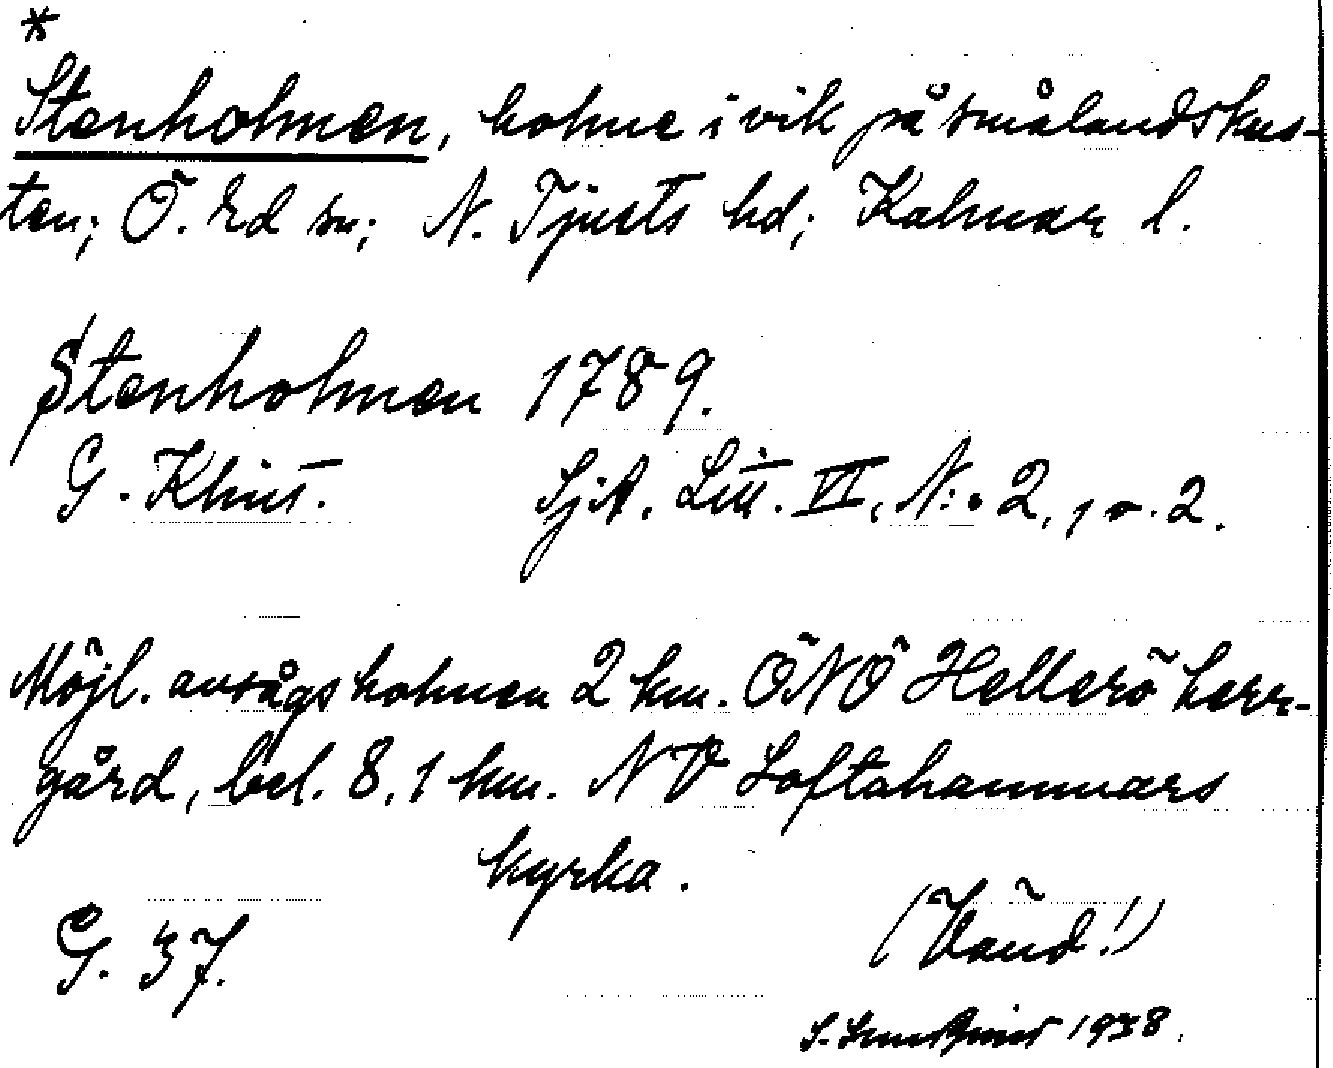 *
Stenholmen, holme i vik på smålandskus-
ten; Ö. Ed sn; N. Tjusts hd; Kalmar l.
Stenholmen 1789.
G. Klint. SjA. Litt. VI, N:o 2, 2.
Möjl. avsågs holmen 2 km. ÖNÖ Hellerö herr-
gård, bel. 8,1 km. NV Loftahammars
kyrka.
(Vänd!)
G. 37.
S. 1938.